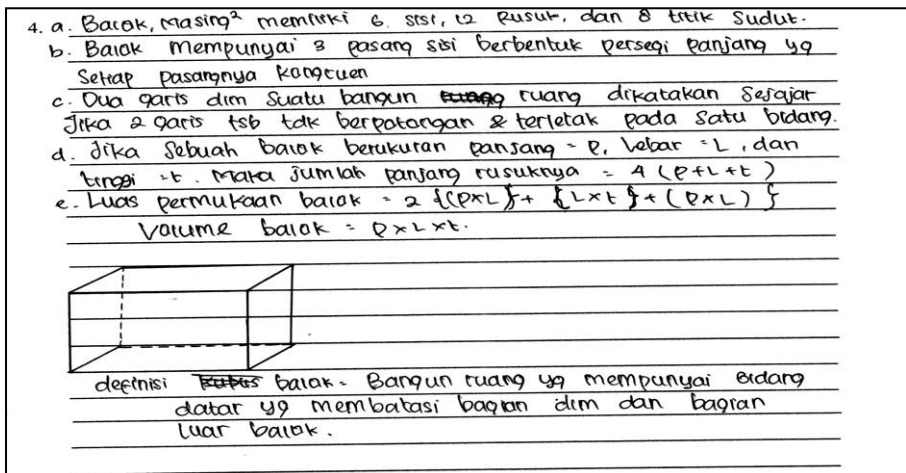 4. a. Balok, masing² memiliki 6 sisi, 12 Rusuk, dan 8 titik Sudut.
b. Balok mempunyai 3 pasang sisi berbentuk persegi panjang yg
setiap pasangnya kongruen
c. Dua garis dlm suatu bangun ruang dikatakan sejajar
Jika 2 garis tsb tdk berpotongan & terletak pada satu bidang.
d. Jika sebuah balok berukuran panjang = P, Lebar = L, dan
tinggi = t. Maka jumlah panjang rusuknya = 4 (P+L+t)
e. Luas permukaan balok = 2 {(P×L)}+ {L×t}+(P×L) }
Volume balok = P×L×t.
definisi balok = Bangun ruang yg mempunyai Bidang
datar yg membatasi bagian dlm dan bagian
luar balok.